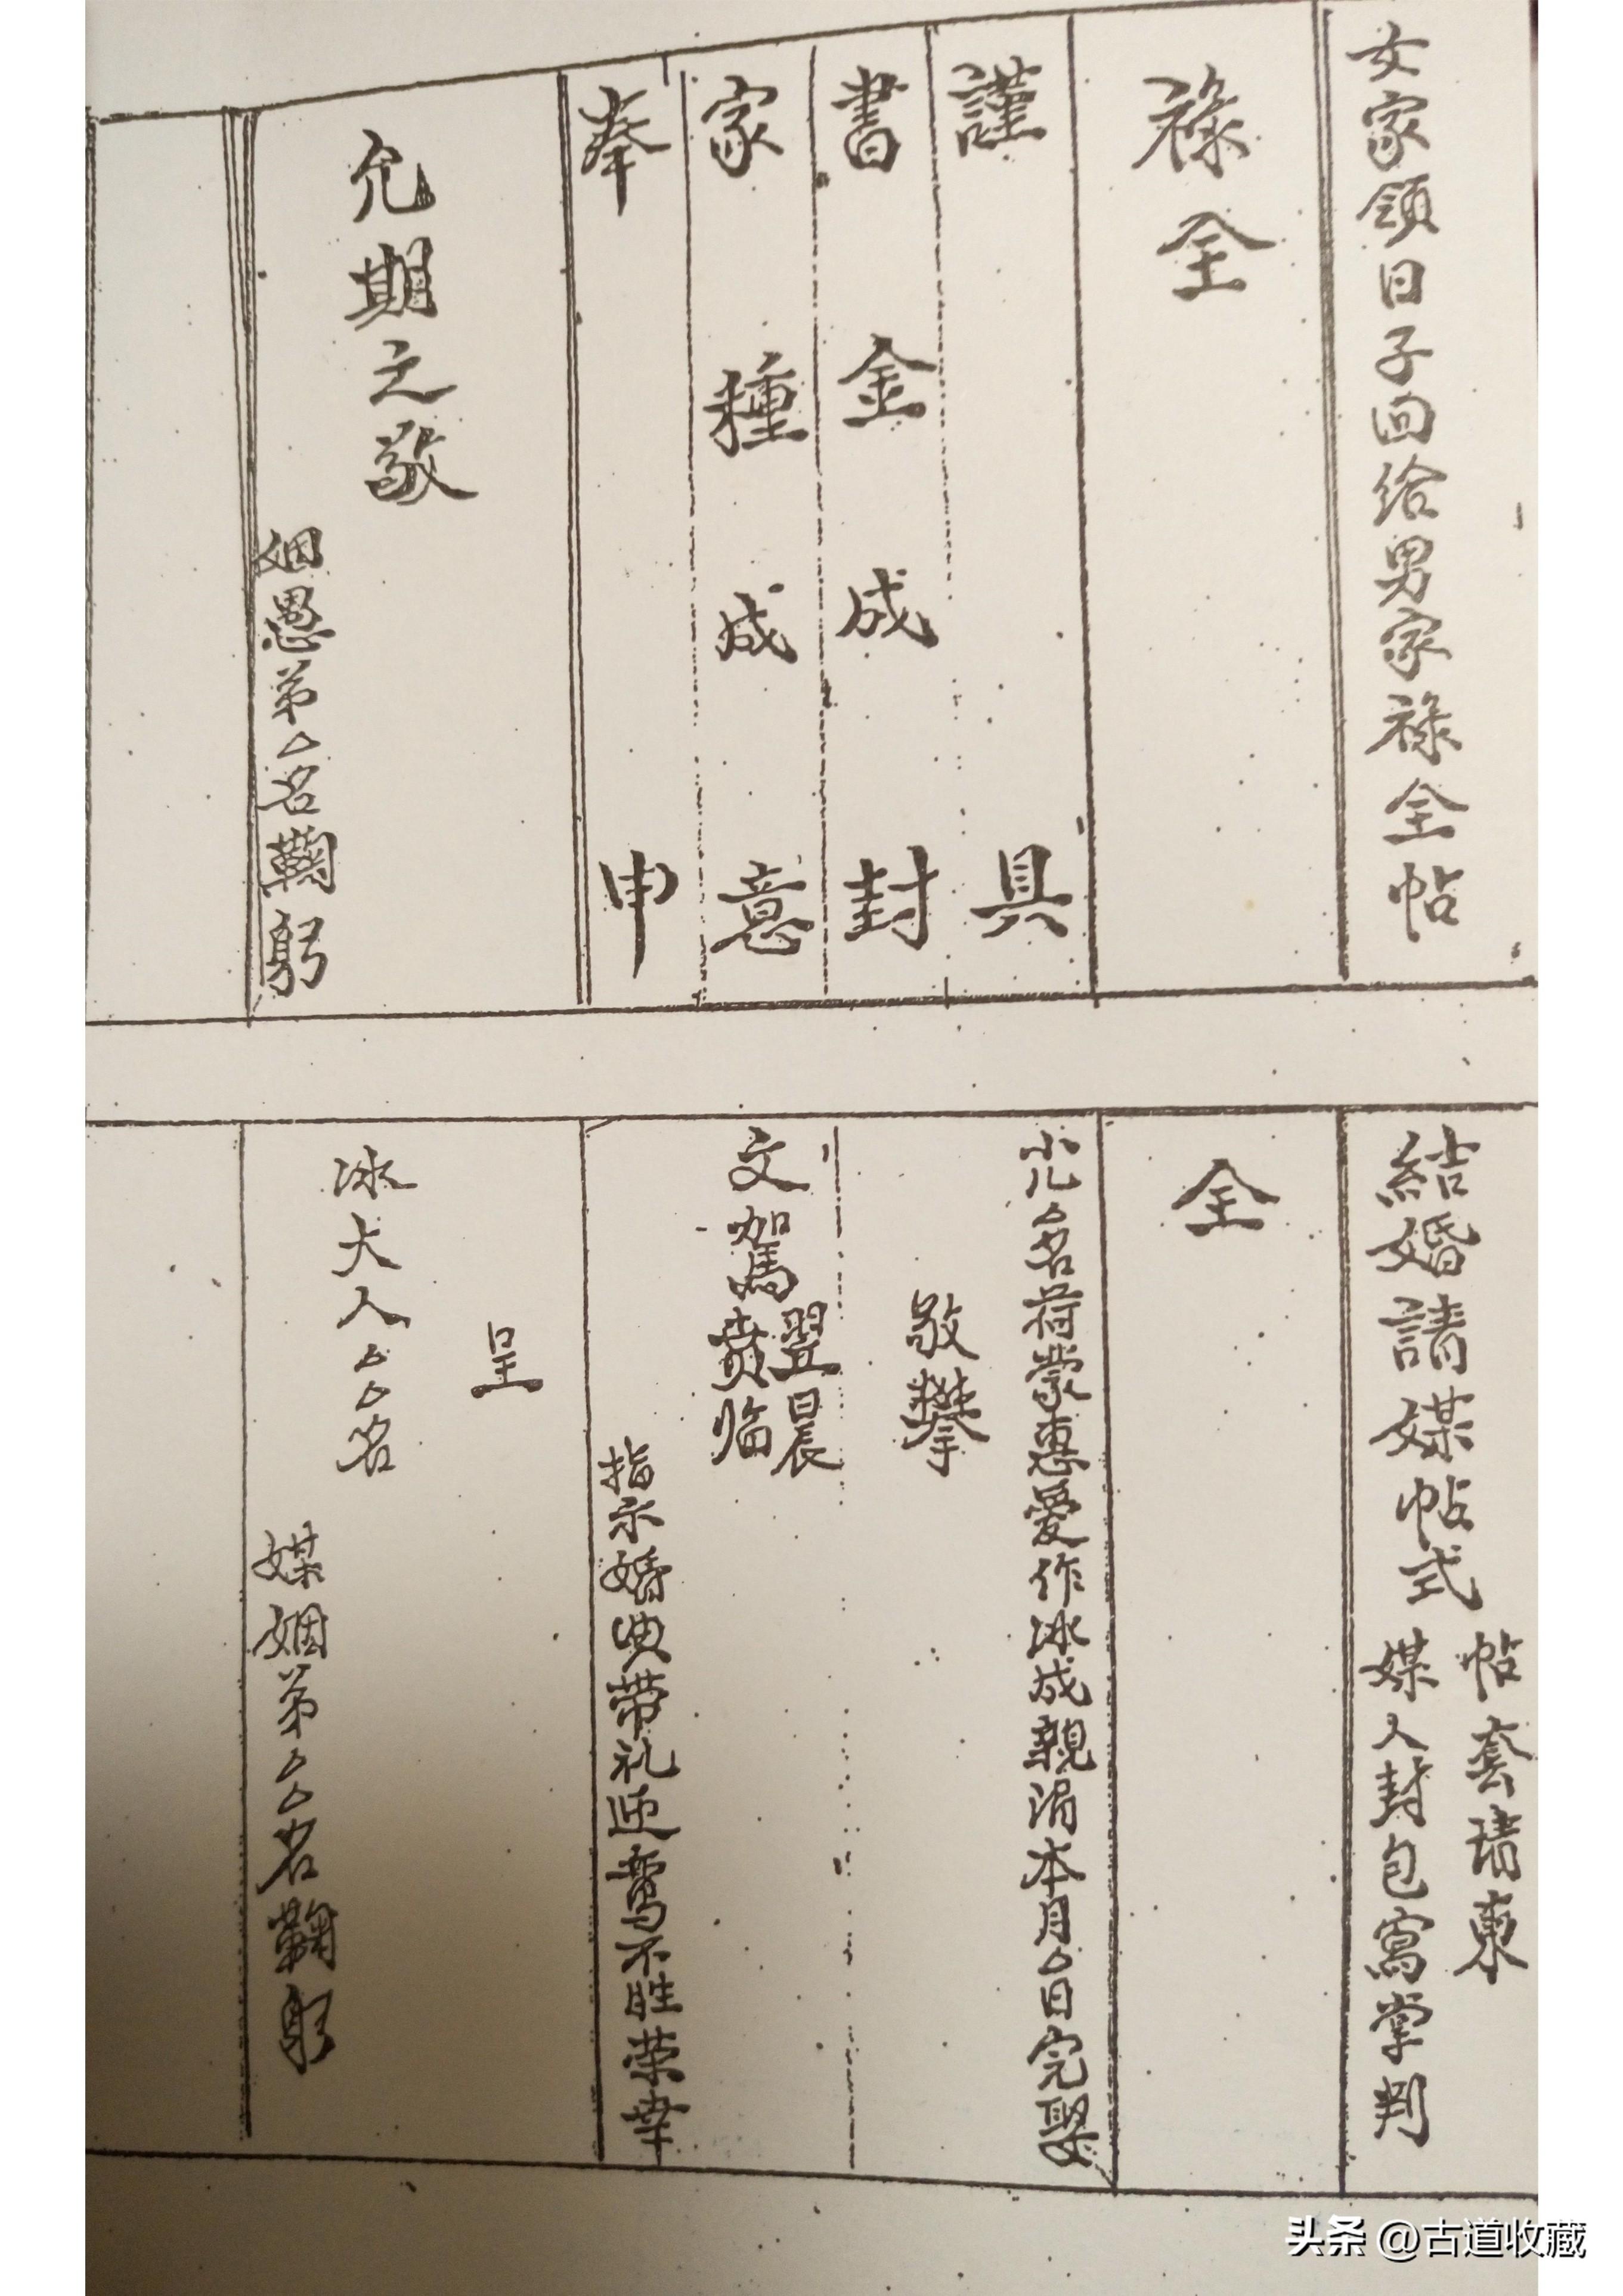 女家領日子回给男家禄全帖
禄全
謹具
書金成封
家種成意
奉申
允期之敬
姻愚弟△名鞠躬
結婚請媒帖式
帖套請柬
媒人封包寫掌判
全
小兒△名荷蒙惠愛作冰成親涓本月△日完娶
敬攀
翌晨
文駕賁临
指示婚典带礼 不胜荣幸
呈
冰大人△△名
媒姻弟△△名鞠躬
头条 @古道收藏